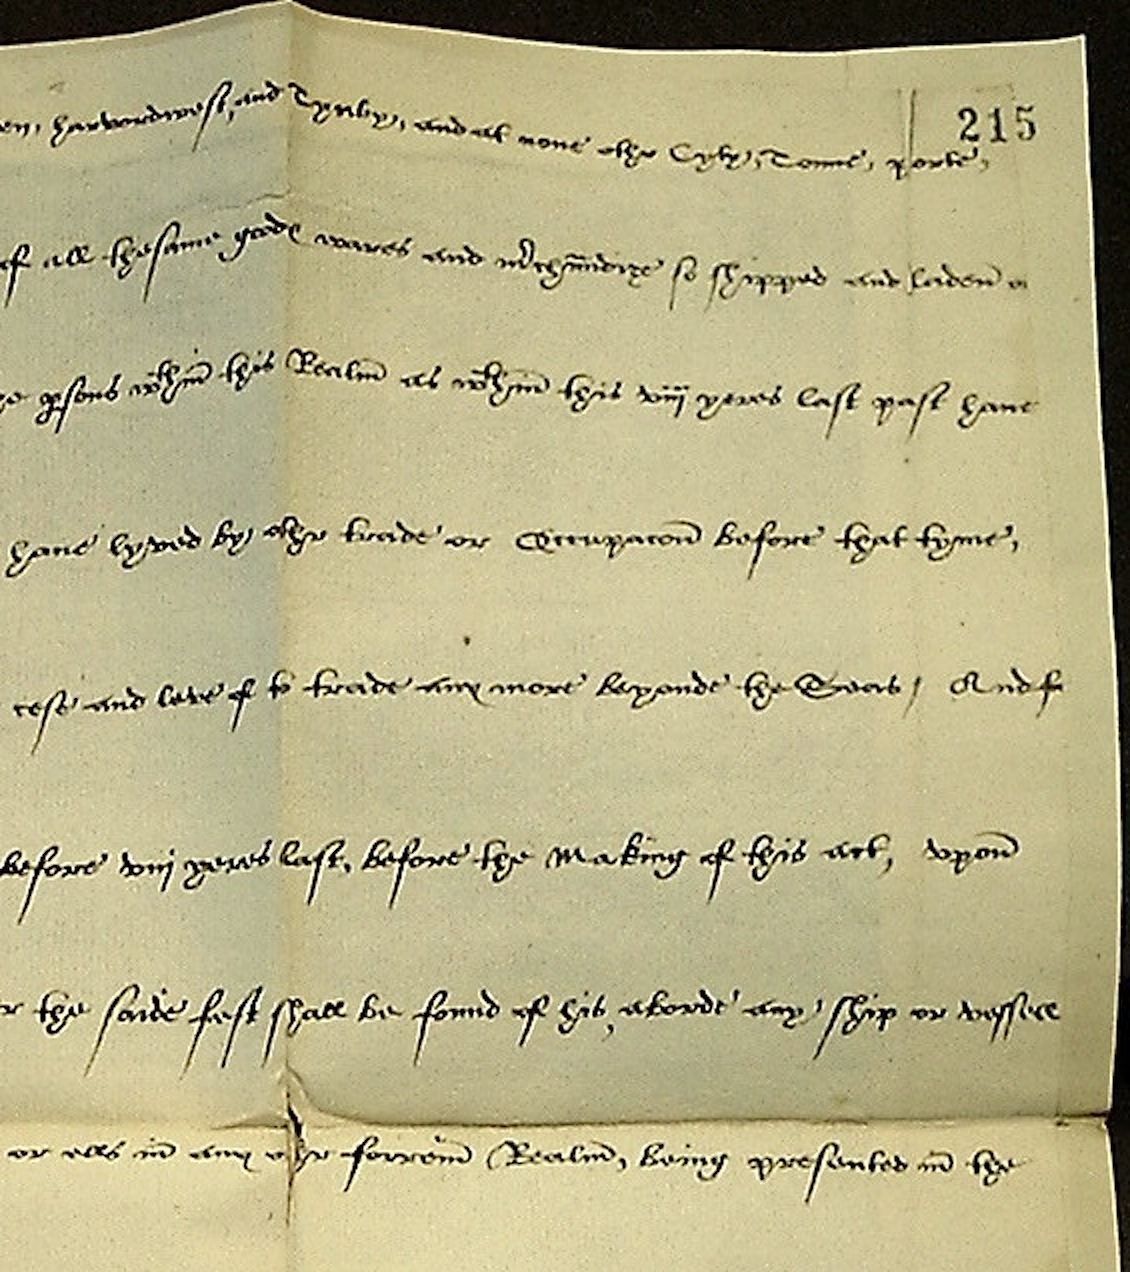 215
en, harverdwest, and Tynby, and at none other Cyty, Towne, porte,
of all thesame goodes wares and m'chaundize so shipped and laden
psons wthin this Realm as wthin this viij yeres last past haue
haue lyved by other trade or Occupacon before that tyme,
cese and leve of to trade any more beyonde the Seas / And
before viij yeres last, before the making of this act, vpon
the saide fest shall be found of his, aborde any ship or vessell
or ells in any other forren Realm, being presented in the